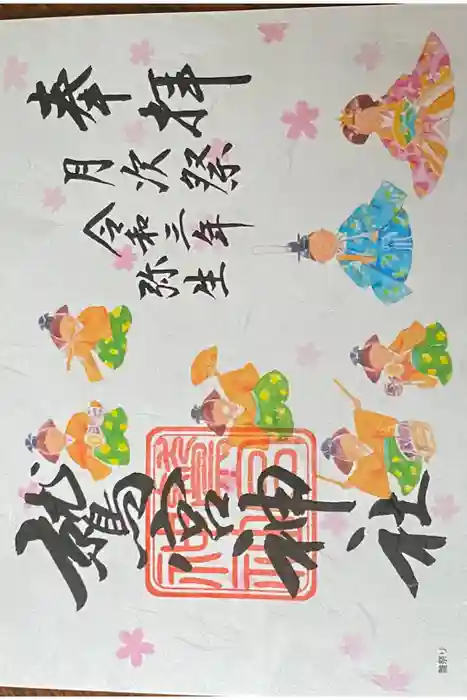 奉拝
月次祭
令和三年
弥生
鷲宮神社
雛祭り